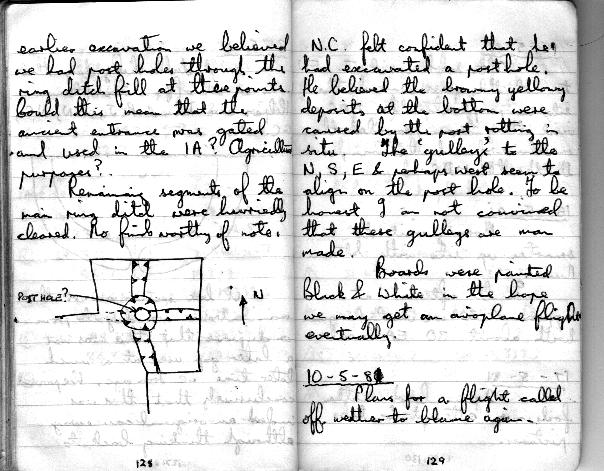 earlier excavation we believed
we had post holes through the
ring ditch fill at these points
Could this mean that the
ancient entrance was gated
and used in the IA? Agricultural
purposes?
Remaining segments of the
main ring ditch were hurriedly
cleared. No finds worthy of note.
POST HOLE?
N
128
N.C. felt confident that he
had excavated a post hole.
He believed the browny yellowy
deposits at the bottom were
caused by the post rotting in
situ. The 'gulleys' to the
N, S, E & perhaps west seem to
align on the post hole. To be
honest I am not convinced
that these gulleys are man
made.
Boards were painted
Black & White in the hope
we may get an airoplane flight
eventually.
10-5-81
Plans for a flight called
off wether to blame again.
129